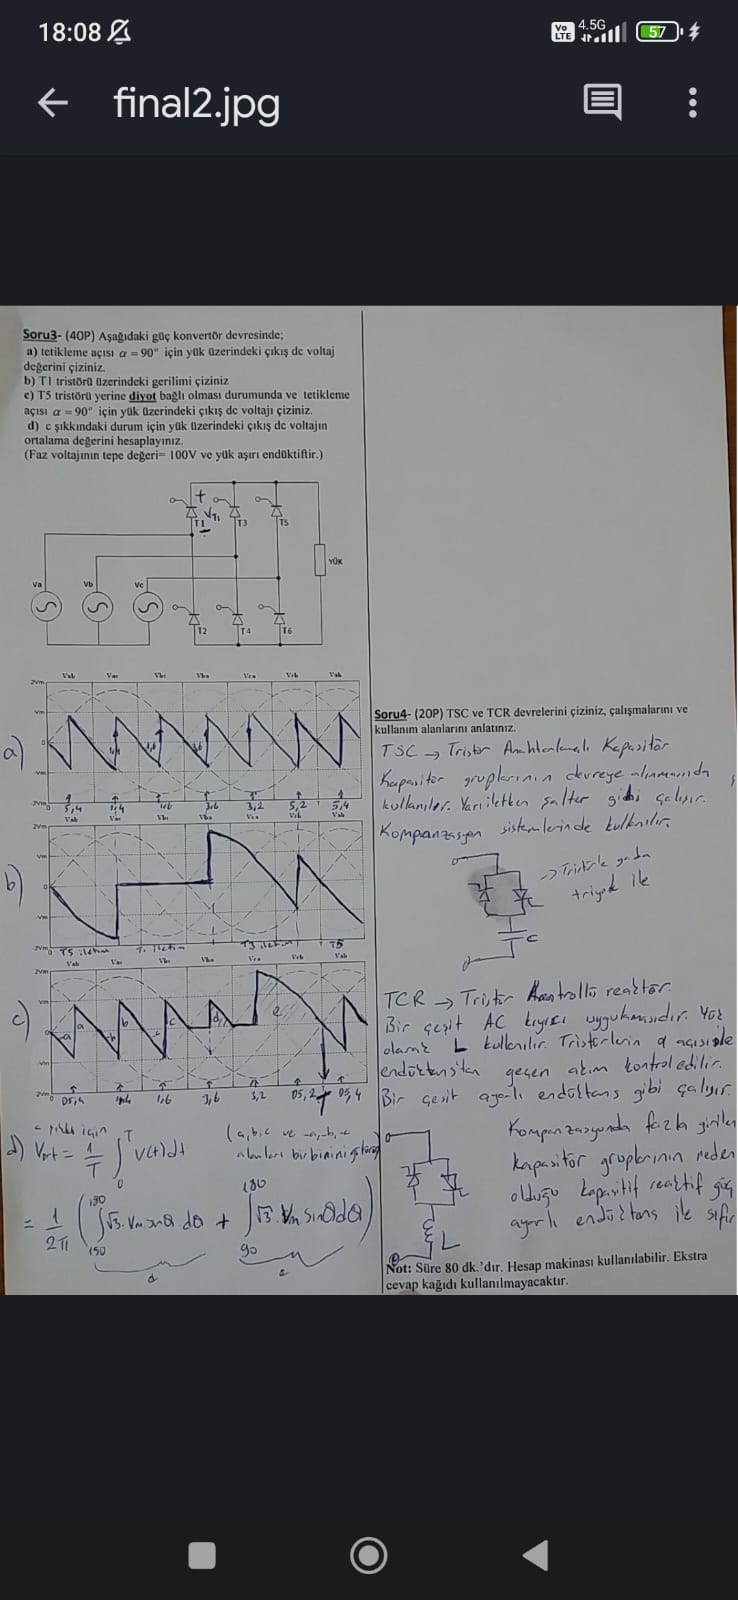 18:08
Vo LTE 4.5G 57
final2.jpg
Soru3- (40P) Aşağıdaki güç konvertör devresinde;
a) tetikleme açısı α = 90° için yük üzerindeki çıkış dc voltaj
değerini çiziniz.
b) T1 tristörü üzerindeki gerilimi çiziniz
c) T5 tristörü yerine diyot bağlı olması durumunda ve tetikleme
açısı α = 90° için yük üzerindeki çıkış dc voltajı çiziniz.
d) c şıkkındaki durum için yük üzerindeki çıkış dc voltajın
ortalama değerini hesaplayınız.
(Faz voltajının tepe değeri= 100V ve yük aşırı endüktiftir.)
+
VT1
-
T1 T3 T5
YÜK
Va Vb Vc
T2 T4 T6
Vab Vac Vbc Vba Vca Vcb Vab
2Vm
Vm
a) 0
-Vm
-2Vm
5,4 1,4 1,6 3,6 3,2 5,2 5,4
Vab Vac Vbc Vba Vca Vcb Vab
2Vm
Vm
b) 0
-Vm
-2Vm
T5 iletim T1 iletim T3 iletim T5
Vab Vac Vbc Vba Vca Vcb Vab
2Vm
Vm
c) 0
-a a -b b -c c d e
-Vm
-2Vm
D5,4 1,4 1,6 3,6 3,2 D5,2 D5,4
c şıkkı için
d) Vort = 1/T ∫ V(t)dt
T
0
(a,b,c ve -a,-b,-c
alanları birbirini götürür)
= 1/2π ( ∫ √3.Vm sinθ.dθ + ∫ √3.Vm sinθdθ )
180
150
180
90
d e
Soru4- (20P) TSC ve TCR devrelerini çiziniz, çalışmalarını ve
kullanım alanlarını anlatınız.
TSC → Tristör Anahtarlamalı Kapasitör
Kapasitör gruplarının devreye alınmasında
kullanılır. Yarıiletken şalter gibi çalışır.
Kompanzasyon sistemlerinde kullanılır.
→ Tristörle yada
triyak ile
C
TCR → Tristör kontrollü reaktör.
Bir çeşit AC kıyıcı uygulamasıdır. Yük
olarak L kullanılır. Tristörlerin α açısı ile
endüktanstan geçen akım kontrol edilir.
Bir çeşit ayarlı endüktans gibi çalışır.
Kompanzasyonda fazla girilen
kapasitör gruplarının neden
olduğu kapasitif reaktif güç
ayarlı endüktans ile sıfır
L
Not: Süre 80 dk.'dır. Hesap makinası kullanılabilir. Ekstra
cevap kağıdı kullanılmayacaktır.